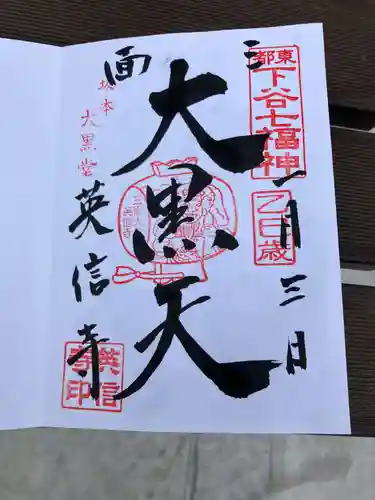 三面
東都
下谷七福神
乙巳歳
一月三日
大黒天
坂本
大黒堂
英信寺
英信寺印